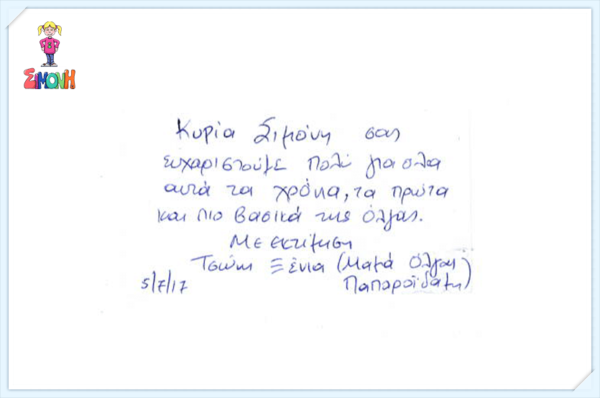 ΣΙΜΟΝΗ
Κυρία Σιμόνη σας
ευχαριστούμε πολύ για όλα
αυτά τα χρόνια, τα πρώτα
και πιο βασικά της Όλγας.
Με εκτίμηση
Ξένια (Μαμά Όλγας
5/7/17